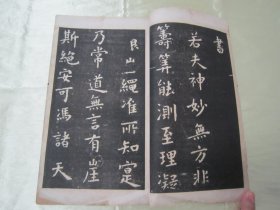 書
若夫神妙無方非
籌筭能測至理凝
繩准所知寔
乃常道無言有崖
斯絕安可馮諸天